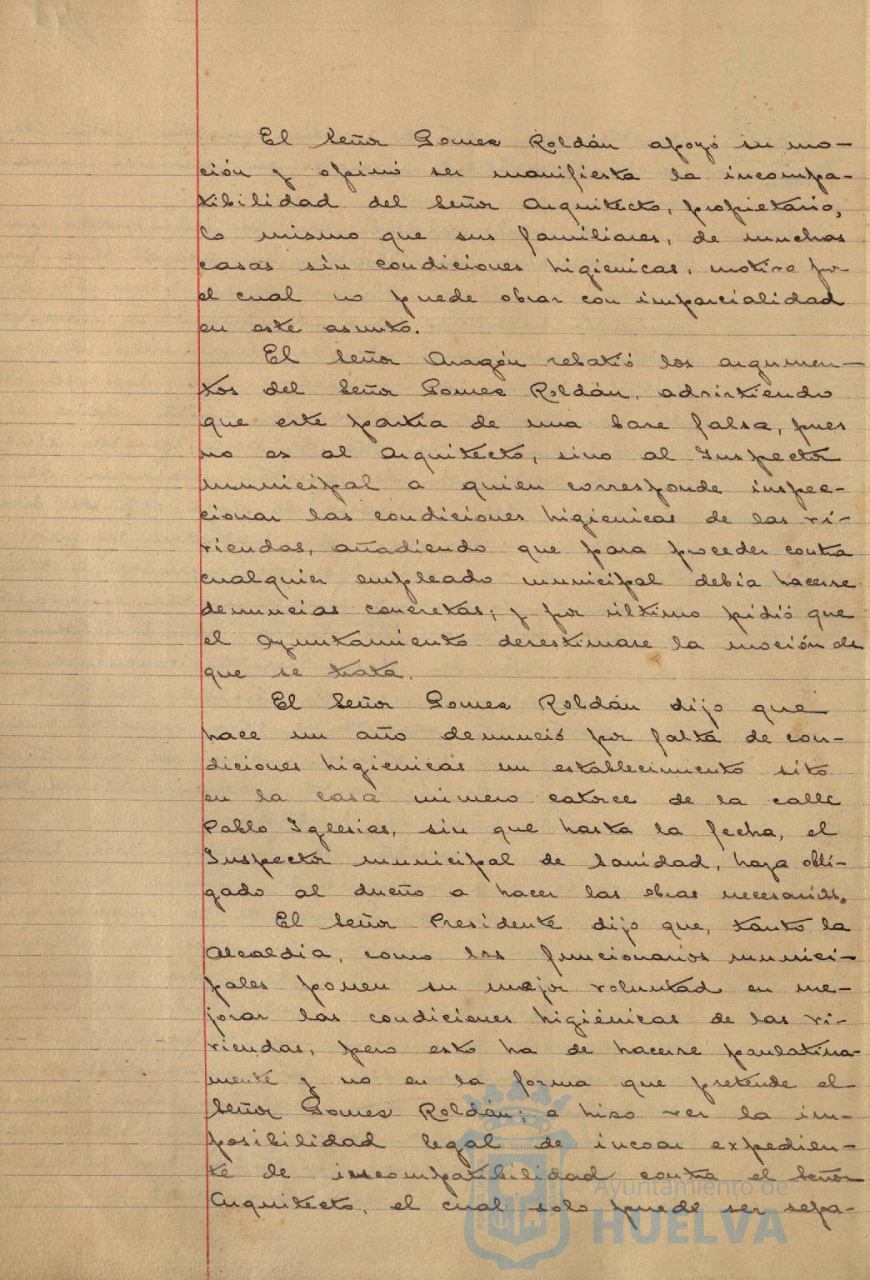 El Señor Gomez Roldán apoyó su mo-
ción y opinó ser manifiesta la incompa-
tibilidad del Señor Arquitecto, propietario,
lo mismo que sus familiares, de muchas
casas sin condiciones higienicas, motivo por
el cual no puede obrar con imparcialidad
en este asunto.
El Señor Aragón rebatió los argumen-
tos del Señor Gomez Roldán, advirtiendo
que este partia de una base falsa, pues
no es al Arquitecto, sino al Inspector
municipal a quien corresponde inspec-
cionar las condiciones higienicas de las vi-
viendas, añadiendo que para proceder contra
cualquier empleado municipal debia hacerse
denuncias concretas; y por ultimo pidió que
el Ayuntamiento desestimase la moción de
que se trata.
El Señor Gomez Roldán dijo que
hace un año denunció por falta de con-
diciones higienicas un establecimiento sito
en la casa número catorce de la calle
Pablo Iglesias, sin que hasta la fecha, el
Inspector municipal de Sanidad, haya obli-
gado al dueño a hacer las obras necesarias.
El Señor Presidente dijo que, tanto la
Alcaldia, como los funcionarios munici-
pales ponen su mejor voluntad en me-
jorar las condiciones higiénicas de las vi-
viendas, pero esto ha de hacerse paulatina-
mente y no en la forma que pretende el
Señor Gomez Roldán; e hizo ver la im-
posibilidad legal de incoar expedien-
te de incompatibilidad contra el Señor
Arquitecto, el cual solo puede ser sepa-
Ayuntamiento de
HUELVA